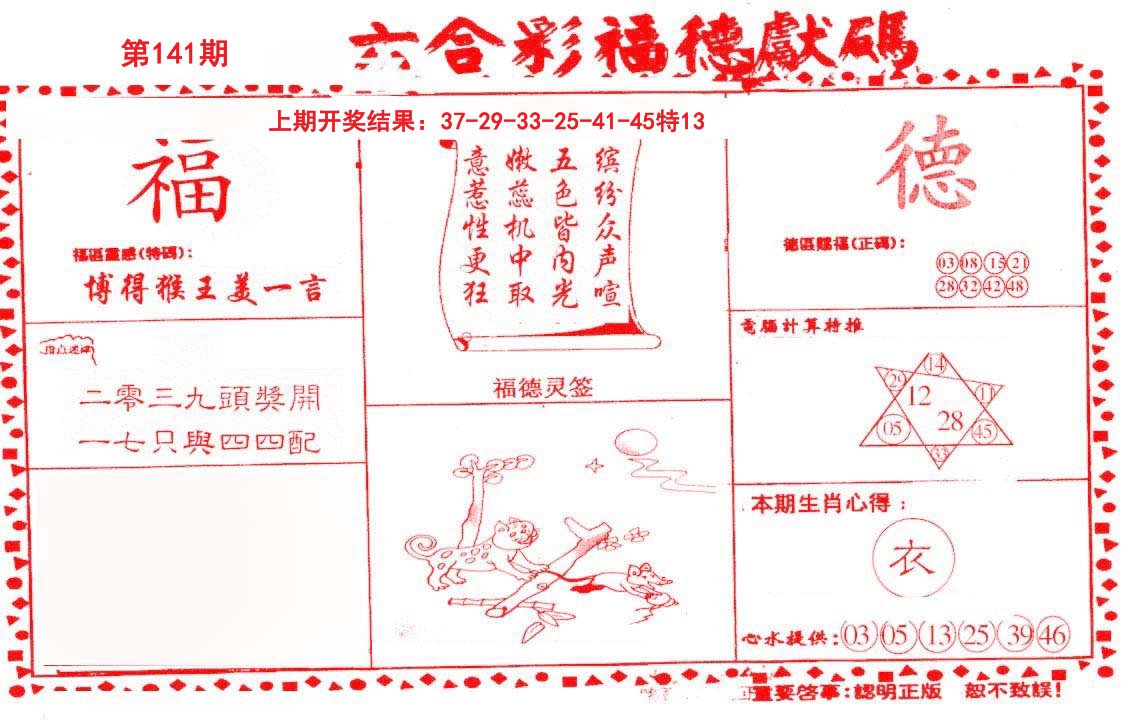 第141期
六合彩福德獻碼
上期开奖结果：37-29-33-25-41-45特13
福
福區靈感(特碼)：
博得猴王美一言
指点迷津
二零三九頭獎開
一七只與四四配
缤纷众声喧
五色皆内光
嫩蕊机中取
意惹性更狂
福德灵签
德
德區賜福(正碼)：
03 08 15 21
28 32 42 48
電腦計算特推
14
29 11
12
28
05 45
33
本期生肖心得：
衣
心水提供：03 05 13 25 39 46
重要啓事：認明正版 恕不致誤！